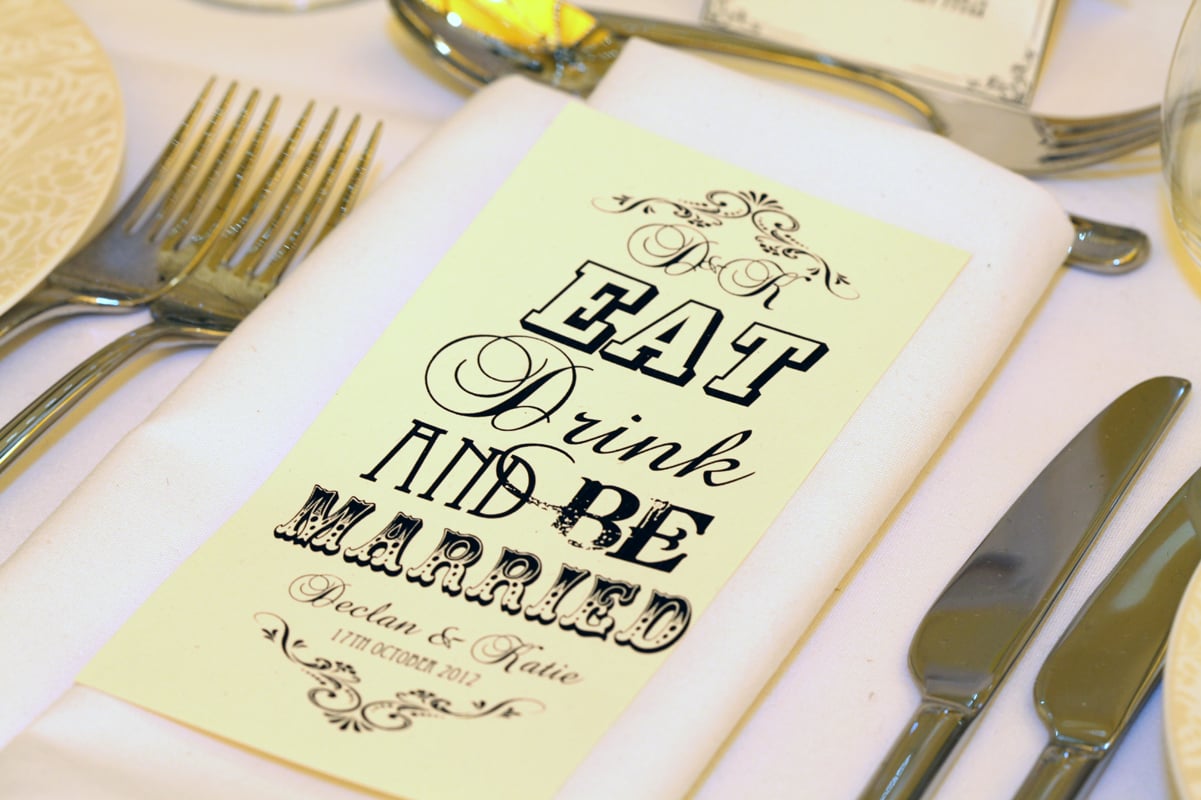 D&K
EAT
Drink
AND BE
MARRIED
Declan & Katie
17TH OCTOBER 2012